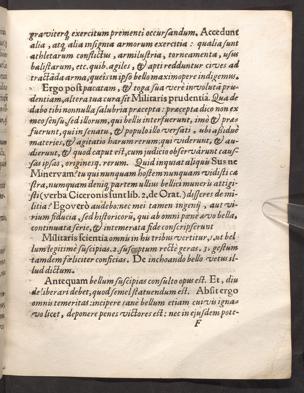 graviterq́ exercitum prementi occursandum. Accedunt
alia, atq́ alia insignia armorum exercitia: qualia sunt
athletarum conflictus, armilustria, torneamenta, usus
balistarum, etc. quib. agiles, & apti redduntur cives ad
tractãda arma, queis in ipso bello maximopere indigemus.
Ergo post pacatam, & toga suâ verè involutã pru-
dentiam, altera tua cura sit Militaris prudentia. Qua de
dabo tibi nonnulla salubria præcepta: præcepta dico non ex
meo sensu, sed illorum, qui bellis interfuerunt, imò & præ-
fuerunt, qui in senatu, & populo illo versati, ubi assiduè
materies, & agitatio harum rerum: qui viderunt, & au-
dierunt, & quod caput est, cum judicio observârunt caus-
sas ipsas, originesq́. rerum. Quid inquiat aliquis Sus ne
Minervam? tu qui nunquam hostem nunquam vidisti ca
stra, nunquam deniq́ partem ullius bellici muneris attigi-
sti (verba Ciceronis sunt lib. 2. de Orat.) disseres de mi-
litia? Ego verò audebo: nec mei tamen ingenij, aut vi-
rium fiducia, sed historicorũ, qui ab omni penè ævo bella,
continuata serie, & intemerata fide conscripserunt
Militaris scientia omnis in his tribus vertitur, 1. ut bel
lum legitimè suscipias. 2. susceptum rectè geras. 3. gestum
tandem feliciter conficias. De inchoando bello vetus il-
lud dictum.
Antequam bellum suscipias consulto opus est. Et, diu
deliberari debet, quod semel statuendum est. Absit ergo
omnis temeritas: incipere sanè bellum etiam cuivis igna-
vo licet, deponere penes victores est: nec in ejusdem pote-
F